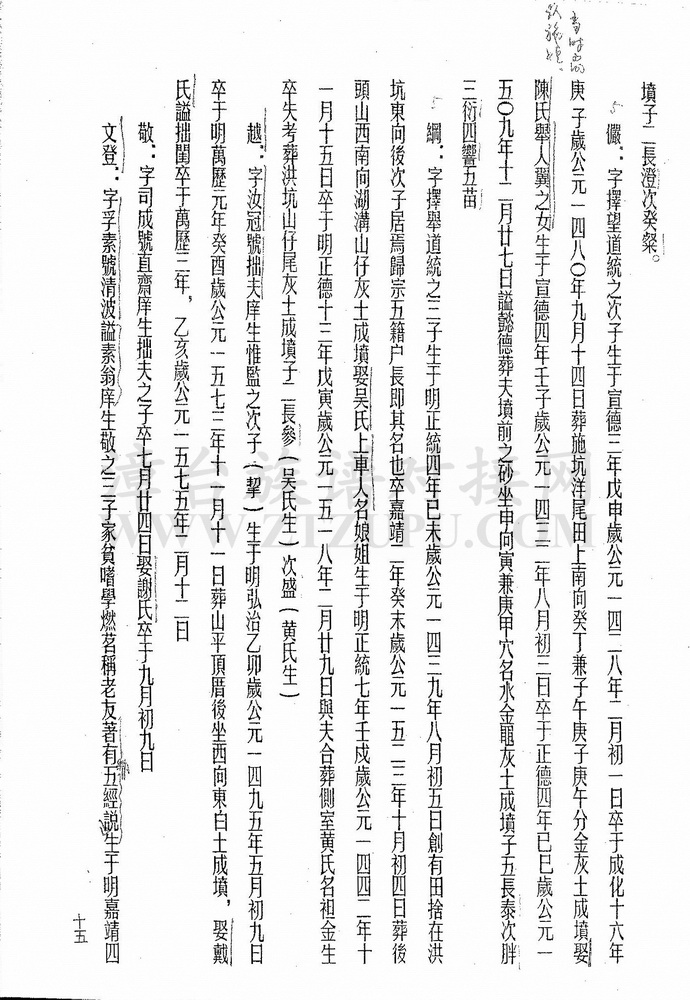 墳子二長澄次癸粲。
儼：字擇望道統之次子生于宣德三年戊申歲公元一四二八年二月初一日卒于成化十六年
庚子歲公元一四八〇年九月十四日葬施坑洋尾田上南向癸丁兼子午庚子庚午分金灰土成墳娶
陳氏舉人翼之女生于宣德四年壬子歲公元一四三二年八月初三日卒于正德四年已巳歲公元一
五〇九年十二月廿七日謚懿德葬夫墳前之砂坐申向寅兼庚甲穴名水金黽灰土成墳子五長泰次胖
三衍四響五苗
綱：字擇舉道統之三子生于明正統四年已未歲公元一四三九年八月初五日創有田捨在洪
坑東向後次子居焉歸宗五籍户長即其名也卒嘉靖二年癸未歲公元一五二三年十月初四日葬後
頭山西南向湖溝山仔灰土成墳娶吴氏上車人名娘姐生于明正統七年壬戍歲公元一四四二年十
一月十五日卒于明正德十三年戊寅歲公元一五一八年二月廿九日與夫合葬側室黄氏名祖金生
卒失考葬洪坑山仔尾灰土成墳子二長參（吴氏生）次盛（黄氏生）
越：字汝冠號拙夫庠生惟監之次子（挈）生于明弘治乙卯歲公元一四九五年五月初九日
卒于明萬歷元年癸酉歲公元一五七三年十一月十一日葬山平頂厝後坐西向東白土成墳，娶戴
氏謚拙閨卒于萬歷三年，乙亥歲公元一五七五年二月十二日
敬：字司成號直齋庠生拙夫之子卒七月廿四日娶謝氏卒于九月初九日
文登：字孚素號清波謚素翁庠生敬之三子家貧嗜學燃茗稱老友著有五經説生于明嘉靖四
十五
章台族譜对接网
WWW.ZTZUPU.COM